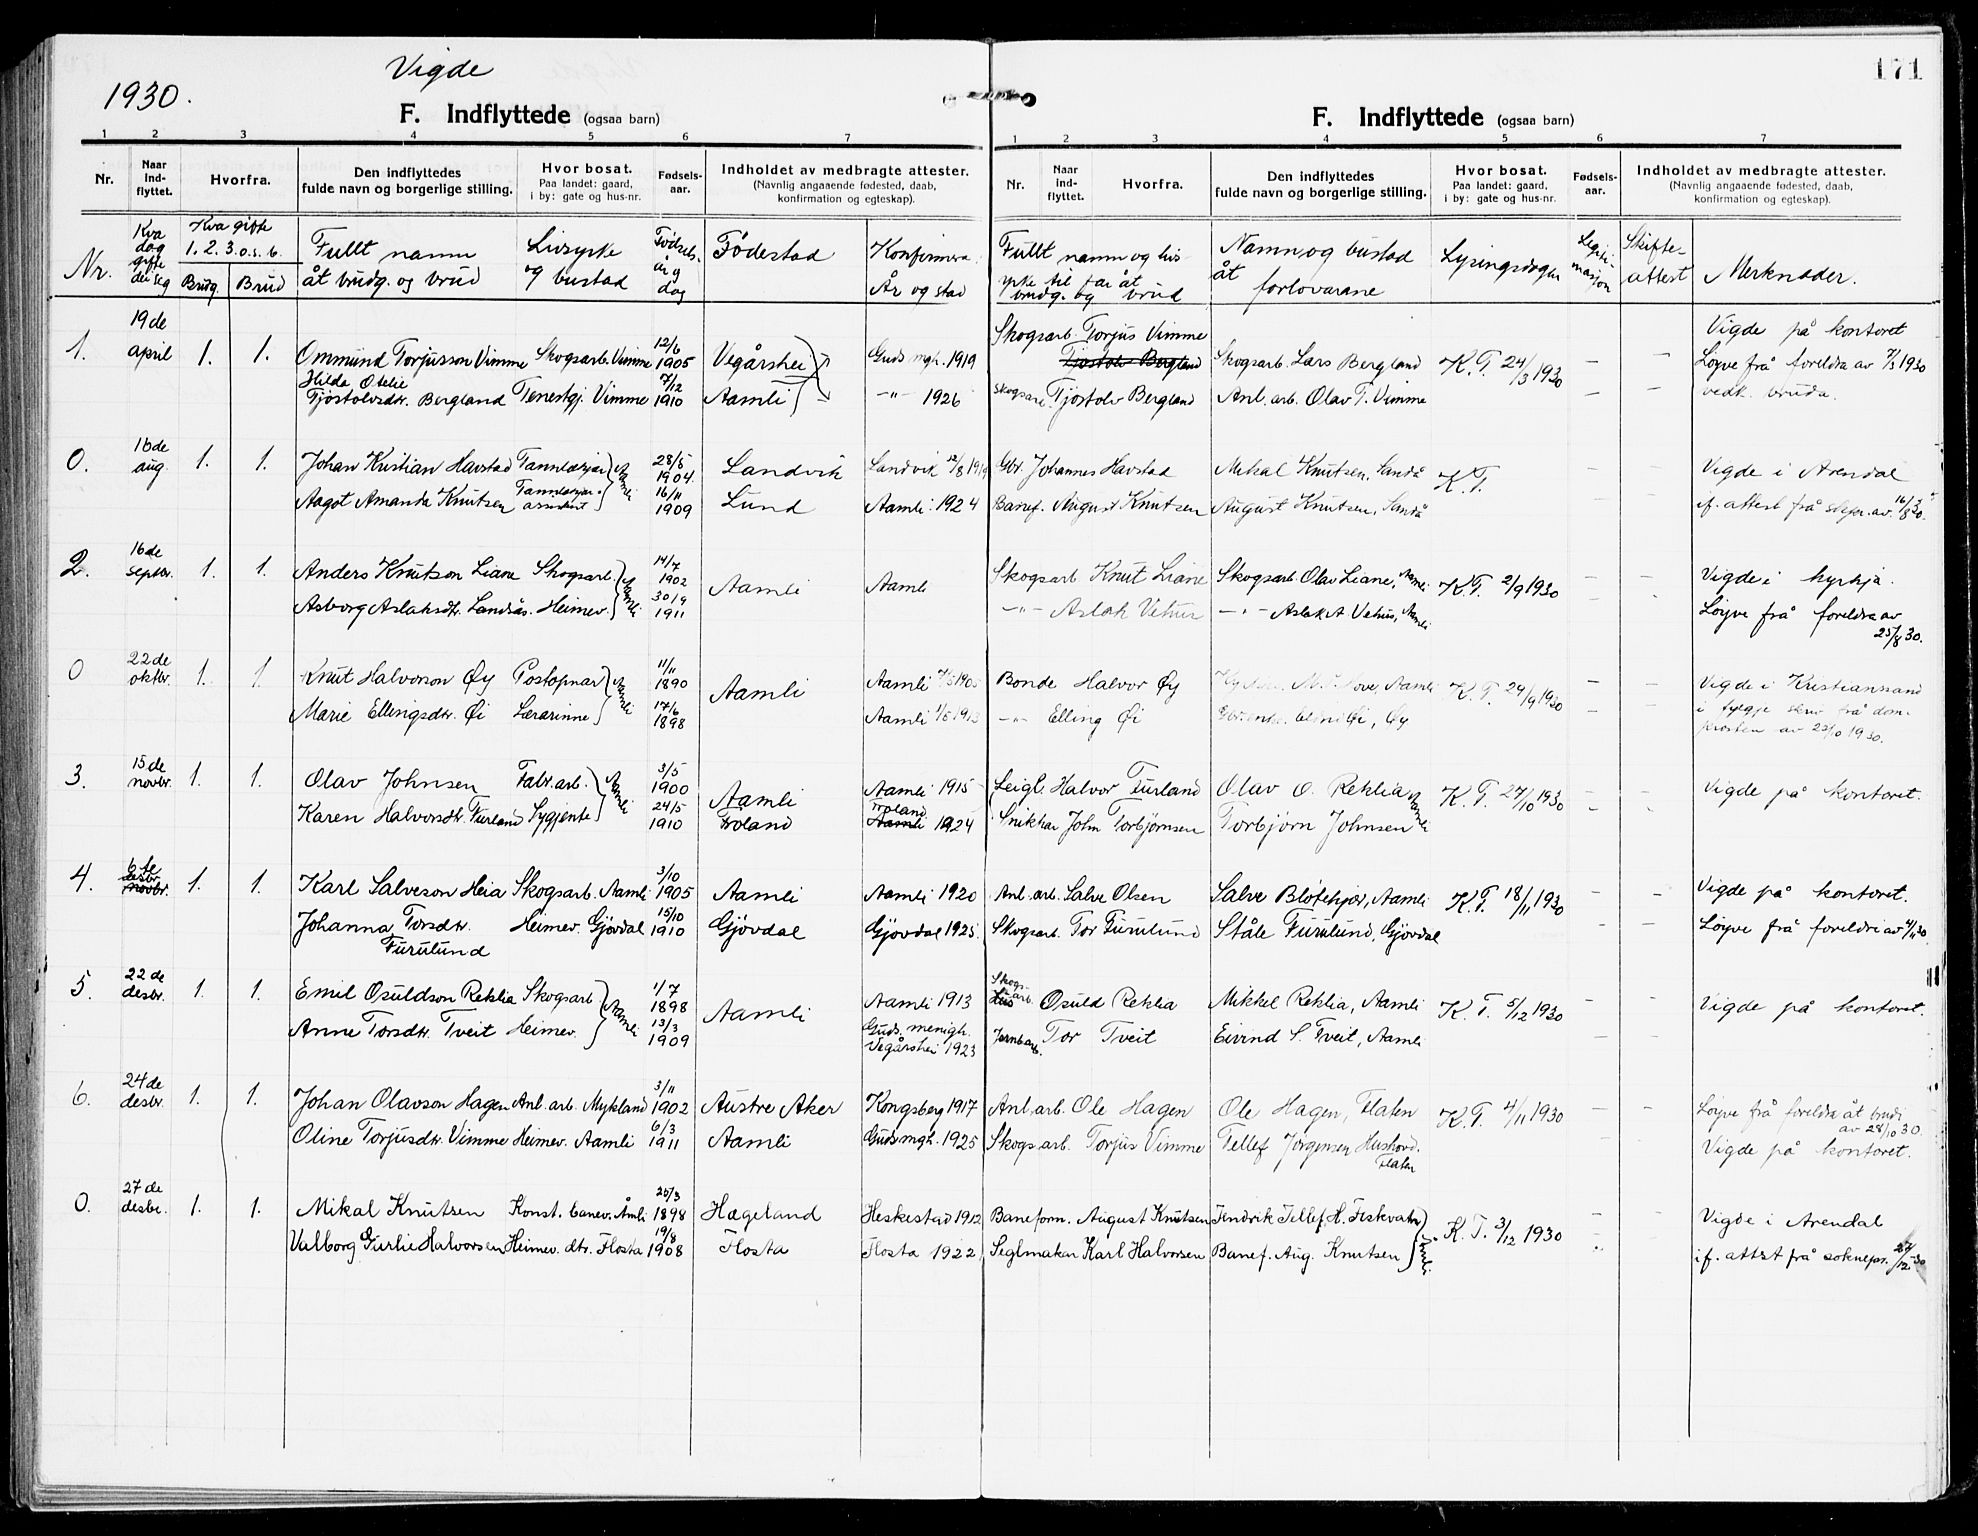 Vigde
1930.
171
F. Indflyttede (ogsaa barn)
1 2 3 4 5 6 7
Nr.
Naar ind- flyttet.
Hvorfra.
Den indflyttedes fulde navn og borgerlige stilling.
Hvor bosat. Paa landet: gaard, i by: gate og hus-nr.
Fødsels- aar.
Indholdet av medbragte attester. (Navnlig angaaende fødested, daab, konfirmation og egteskap).
F. Indflyttede (ogsaa barn)
1 2 3 4 5 6 7
Nr.
Naar ind- flyttet.
Hvorfra.
Den indflyttedes fulde navn og borgerlige stilling.
Hvor bosat. Paa landet: gaard, i by: gate og hus-nr.
Fødsels- aar.
Indholdet av medbragte attester. (Navnlig angaaende fødested, daab, konfirmation og egteskap).
Nr.
Kva dag gifte dei seg
Kva gifte 1. 2. 3. o.s.b.
Brudg. Brud
Fullt namn åt brudg. og brud
Livsyrke og bustad
Fødsels- år og dag
Fødestad
Konfirmera År og stad
Fullt namn og livs- yrke til far åt brudg. og brud
Namn og bustad åt forlovarane
Lysingsdagen
Legiti- masjon
Skifte- attest
Merknader.
1. 19de april 1. 1. Ommund Torjusson Vimme Skogsarb. Vimme 12/6 1905 Vegårshei Guds mgh. 1919 Skogsarb. Torjus Vimme Skogsarb. Lars Bergland K.T. 24/3 1930 – – Vigde på kontoret
Tjostolv Bergland
Løyve frå foreldra av 7/3 1930
Hilda Otelie
Tjostolvsdtr. Bergland Tenestgj. Vimme 7/12 1910 Aamli -"- 1926 Skogsarb. Tjostolv Bergland Anl. arb. Olav T. Vimme – – vedk. bruda.
0. 16de aug. 1. 1. Johan Kristian Havstad Tannlækjar Aamli 28/5 1904. Landvik Landvik 12/8 1919 Gbr. Johannes Havstad Mikal Knutsen, Sandå K.T. – – Vigde i Arendal
Aagot Amanda Knutsen Tannlækjar- assistent 16/11 1909 Lund Aamli 1924 Banef. August Knutsen August Knutsen, Sandå – – if. attest frå sokpr. av. 16/8 30.
2. 16de septbr. 1. 1. Anders Knutson Liane Skogsarb. Aamli 14/7 1902 Aamli Aamli Skogsarb Knut Liane Skogsarb. Olav Liane, Aamli K.T. 2/9 1930 – – Vigde i kyrkja.
Asborg Aslaksdtr. Landås. Heimev. 30/9 1911 -"- Aslak Vehus -"- Aslak A. Vehus, Aamli – – Løyve frå foreldra av
25/8 30.
0 22de oktbr. 1. 1. Knut Halvorson Øy Postopnar Aamli 11/11 1890 Aamli Aamli 1905 Bonde Halvor Øy Aamli K.T. 29/9 1930 – – Vigde i Kristiansand
Marie Ellingsdtr. Øi Lærarinne 17/6 1898 Aamli 1913 -"- Elling Øi Øi, Øy – – i fylgje skriv frå dom-
prosten av 23/10 1930.
3. 15de novbr. 1. 1. Olav Johnsen Fabr. arb. Aamli 3/5 1900 Aamli Aamli 1915 Halvor Furland Olav O. Reklia Aamli K.T. 27/10 1930 – – Vigde på kontoret.
Karen Halvorsdtr. Furland Sygjente 24/5 1910 Froland Froland Aamli 1924 Snikkar John Torbjørnsen Torbjørn Johnsen – –
4. 6te desbr. novbr. 1. 1. Karl Salveson Heia Skogsarb. Aamli 3/10 1905 Aamli Aamli 1920 Anl. arb. Salve Olsen Salve Bløtekjær, Aamli K.T. 18/11 1930 – – Vigde på kontoret.
Johanna Torsdtr. Furulund Heimev. Gjøvdal 15/10 1910 Gjøvdal Gjøvdal 1925 Skogsarb. Tor Furulund Ståle Furulund, Gjøvdal – – Løyve frå foreldri av 4/11 30
5. 22de desbr. 1. 1. Emil Osuldson Reklia Skogsarb. Aamli 1/7 1898 Aamli Aamli 1913 Skogs- arb. Osuld Reklia Mikkel Reklia, Aamli K.T. 5/12 1930 – – Vigde på kontoret.
Anne Torsdtr. Tveit Heimev. 13/3 1909 Guds. menigh. Vegårshei 1923 Jernb arb. Tor Tveit Eivind S. Tveit, Aamli – –
6. 24de desbr. 1. 1. Johan Olavson Hagen Anl. arb. Mykland 3/11 1902 Austre Aker Kongsberg 1917 Anl. arb. Ole Hagen Ole Hagen, Flaten K.T. 4/11 1930 – – Løyve frå foreldra åt brudi
av 28/10 30.
Oline Torjusdtr. Vimme Heimev. Aamli 6/3 1911 Aamli Guds mgh. 1925 Skogs.arb. Torjus Vimme Tellef Jørgensen Hushovd. Flaten – – Vigde på kontoret.
0. 27de desbr. 1. 1. Mikal Knutsen Konst. banev. Åmli 25/3 1898 Hægeland Heskestad 1912 Baneform. August Knutsen Fendrik Tellef H. Fiskvatn K.T. 3/12 1930 – – Vigde i Arendal
Valborg Gurlie Halvorsen Heimev. dtr. Flosta 19/8 1908 Flosta Flosta 1922 Seglmakar Karl Halvorsen Banef. Aug. Knutsen Åmli. – – if. attest frå soknepr. 27/12-30